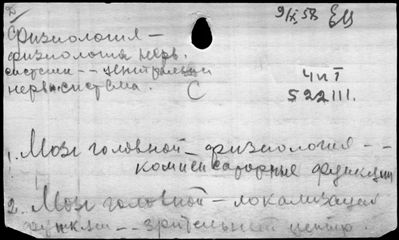 9/IX 58
Физиология —
физиология нерв.
системы -- центральн
нервн. система.
С
Ч и Т
522111.
1. Мозг головной — физиология --
компенсаторные функции
2. Мозг головной — локализация
функции -- зрительный центр.